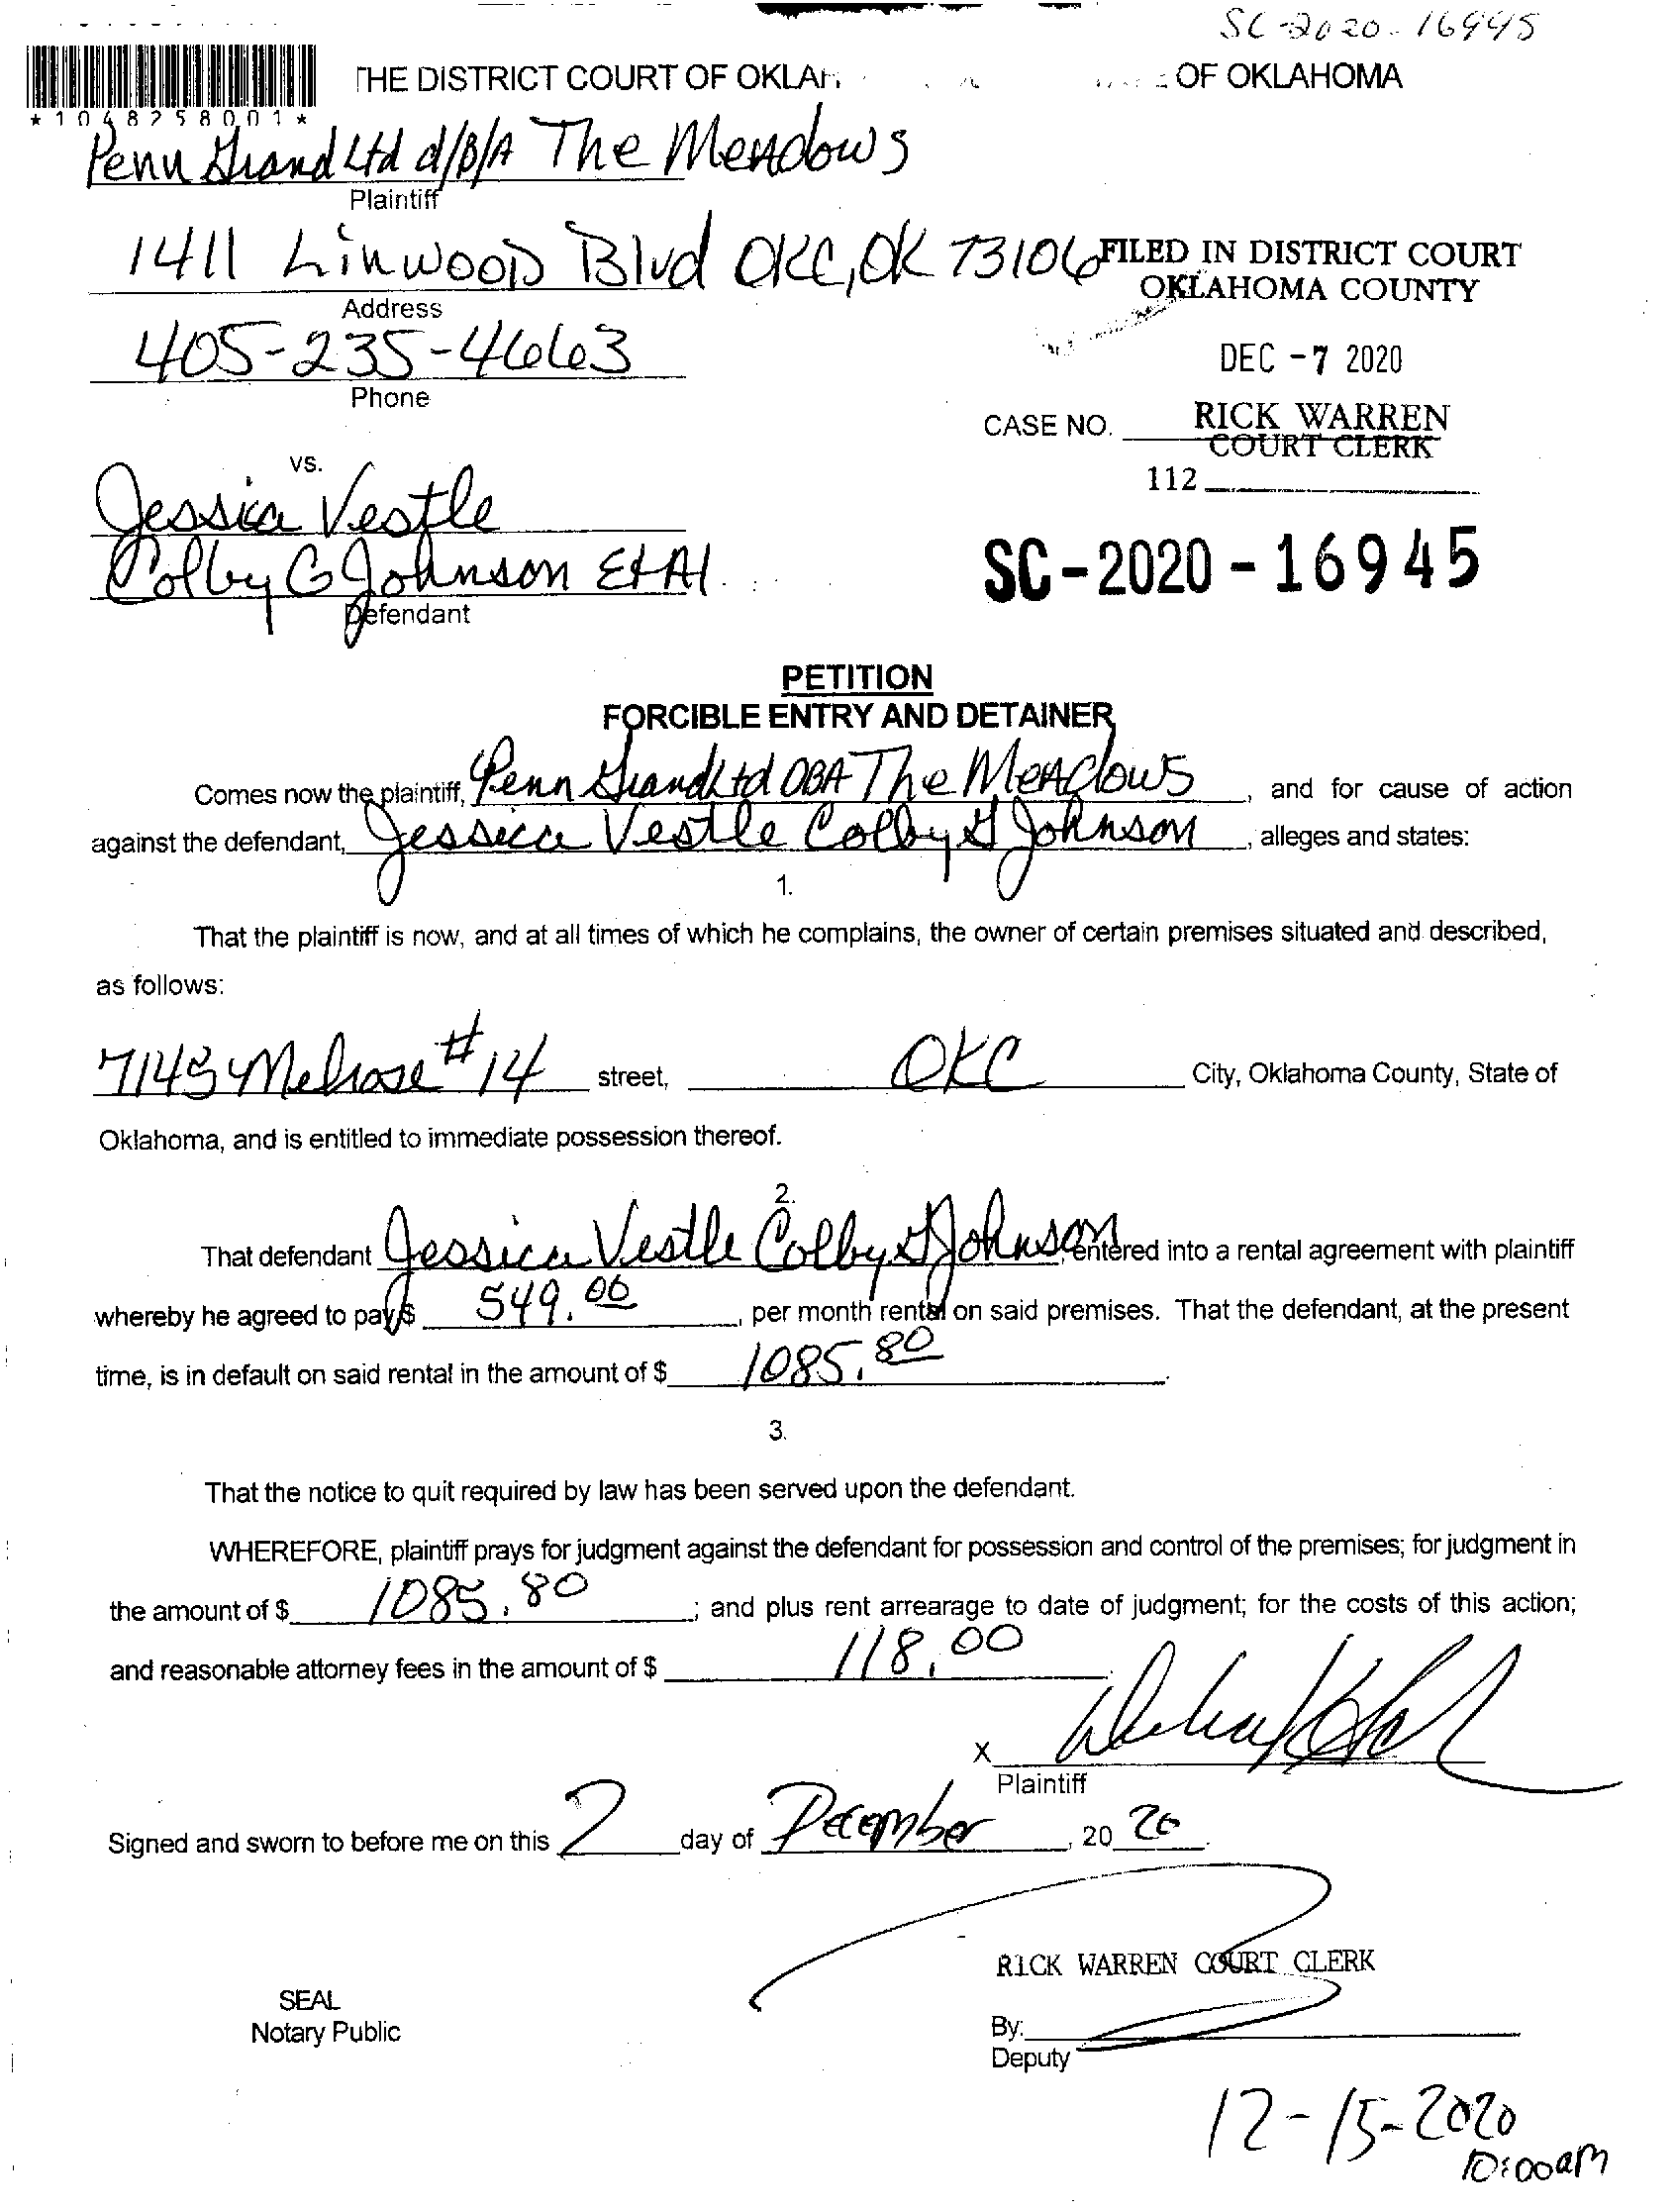 SC-2020-16945
THE DISTRICT COURT OF OKLAH OF OKLAHOMA
*1048258001*
Penn Grand Ltd d/B/A The Meadows
Plaintiff
1411 Linwood Blvd OKC, OK 73106
FILED IN DISTRICT COURT
OKLAHOMA COUNTY
Address
405-235-4663
DEC -7 2020
Phone
CASE NO. RICK WARREN
COURT CLERK
vs.
112
Jessica Vestle
Colby G Johnson Et Al.
SC-2020-16945
Defendant
PETITION
FORCIBLE ENTRY AND DETAINER
Comes now the plaintiff, Penn Grand Ltd DBA The Meadows, and for cause of action
against the defendant, Jessica Vestle Colby G Johnson, alleges and states:
1.
That the plaintiff is now, and at all times of which he complains, the owner of certain premises situated and described,
as follows:
7143 Melrose #14 street, OKC City, Oklahoma County, State of
Oklahoma, and is entitled to immediate possession thereof.
2.
That defendant Jessica Vestle Colby G Johnson, entered into a rental agreement with plaintiff
whereby he agreed to pay $ 549.00, per month rental on said premises. That the defendant, at the present
time, is in default on said rental in the amount of $ 1085.80.
3.
That the notice to quit required by law has been served upon the defendant.
WHEREFORE, plaintiff prays for judgment against the defendant for possession and control of the premises; for judgment in
the amount of $ 1085.80; and plus rent arrearage to date of judgment; for the costs of this action;
and reasonable attorney fees in the amount of $ 118.00.
X
Plaintiff
Signed and sworn to before me on this 2 day of December, 20 20.
RICK WARREN COURT CLERK
SEAL
Notary Public
By:
Deputy
12-15-2020
10:00am